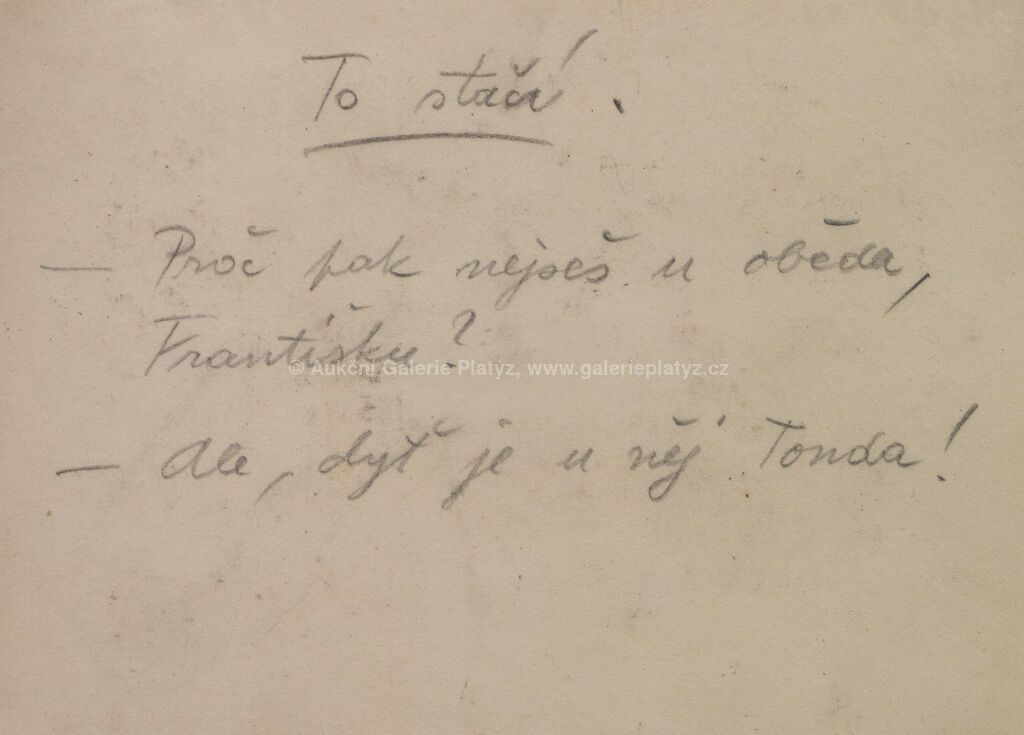 To stačí.
— Proč pak nejseš u oběda,
Františku?
© Aukční Galerie Platýz, www.galerieplatyz.cz
— Ale, dyť je u něj Tonda!